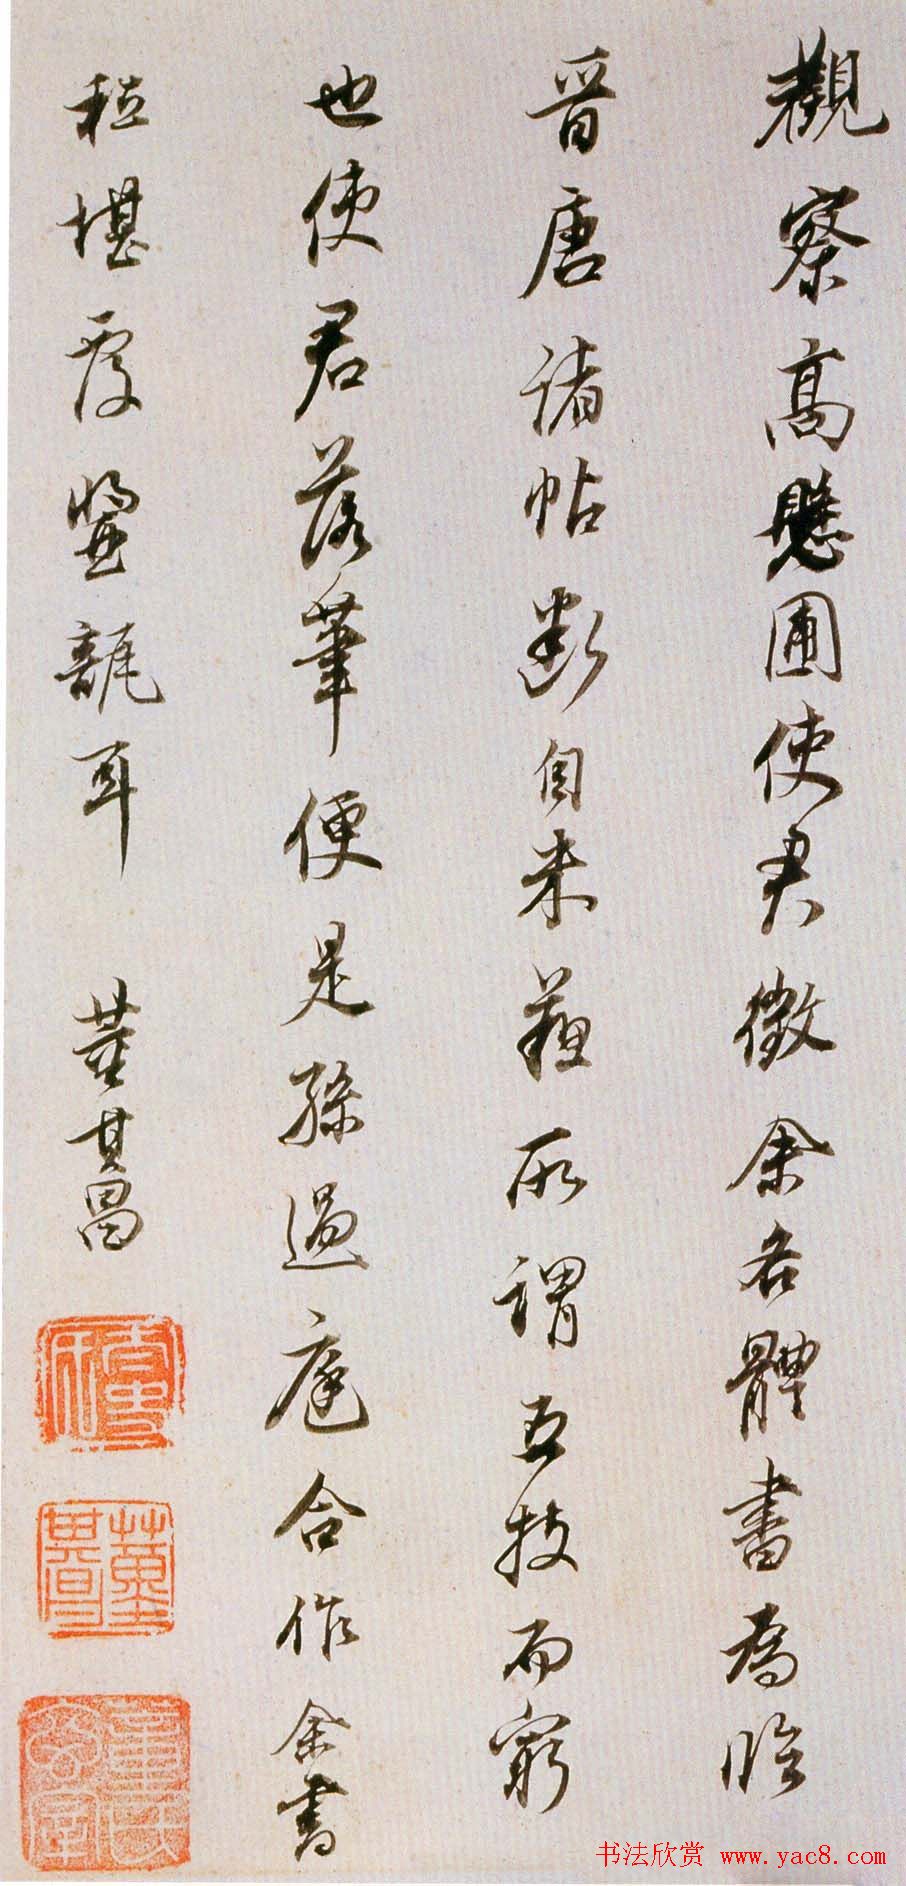 觀察高懸圃使君徵余各體書為臨
晉唐諸帖斷自米蘓所謂五技而窮
也使君落筆便是孫過庭合作余書
秪堪覆醬瓿耳 董其昌
董其昌
书法欣赏 www.yac8.com